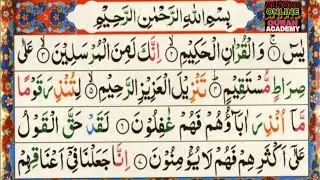 ONLINE
QURAN
ACADEMY
بِسْمِ اللّٰهِ الرَّحْمٰنِ الرَّحِيْمِ
يٰسٓ ۚ‏﴿۱﴾ وَالْقُرْاٰنِ الْحَكِيْمِ ۙ‏﴿۲﴾ اِنَّكَ لَمِنَ الْمُرْسَلِيْنَ ۙ‏﴿۳﴾ عَلٰى
صِرَاطٍ مُّسْتَقِيْمٍ ؕ‏﴿۴﴾ تَنْزِيْلَ الْعَزِيْزِ الرَّحِيْمِ ۙ‏﴿۵﴾ لِتُنْذِرَ قَوْمًا
مَّاۤ اُنْذِرَ اٰبَآؤُهُمْ فَهُمْ غٰفِلُوْنَ ‏﴿۶﴾ لَقَدْ حَقَّ الْقَوْلُ
عَلٰٓى اَكْثَرِهِمْ فَهُمْ لَا يُؤْمِنُوْنَ ‏﴿۷﴾ اِنَّا جَعَلْنَا فِىْۤ اَعْنَاقِهِمْ